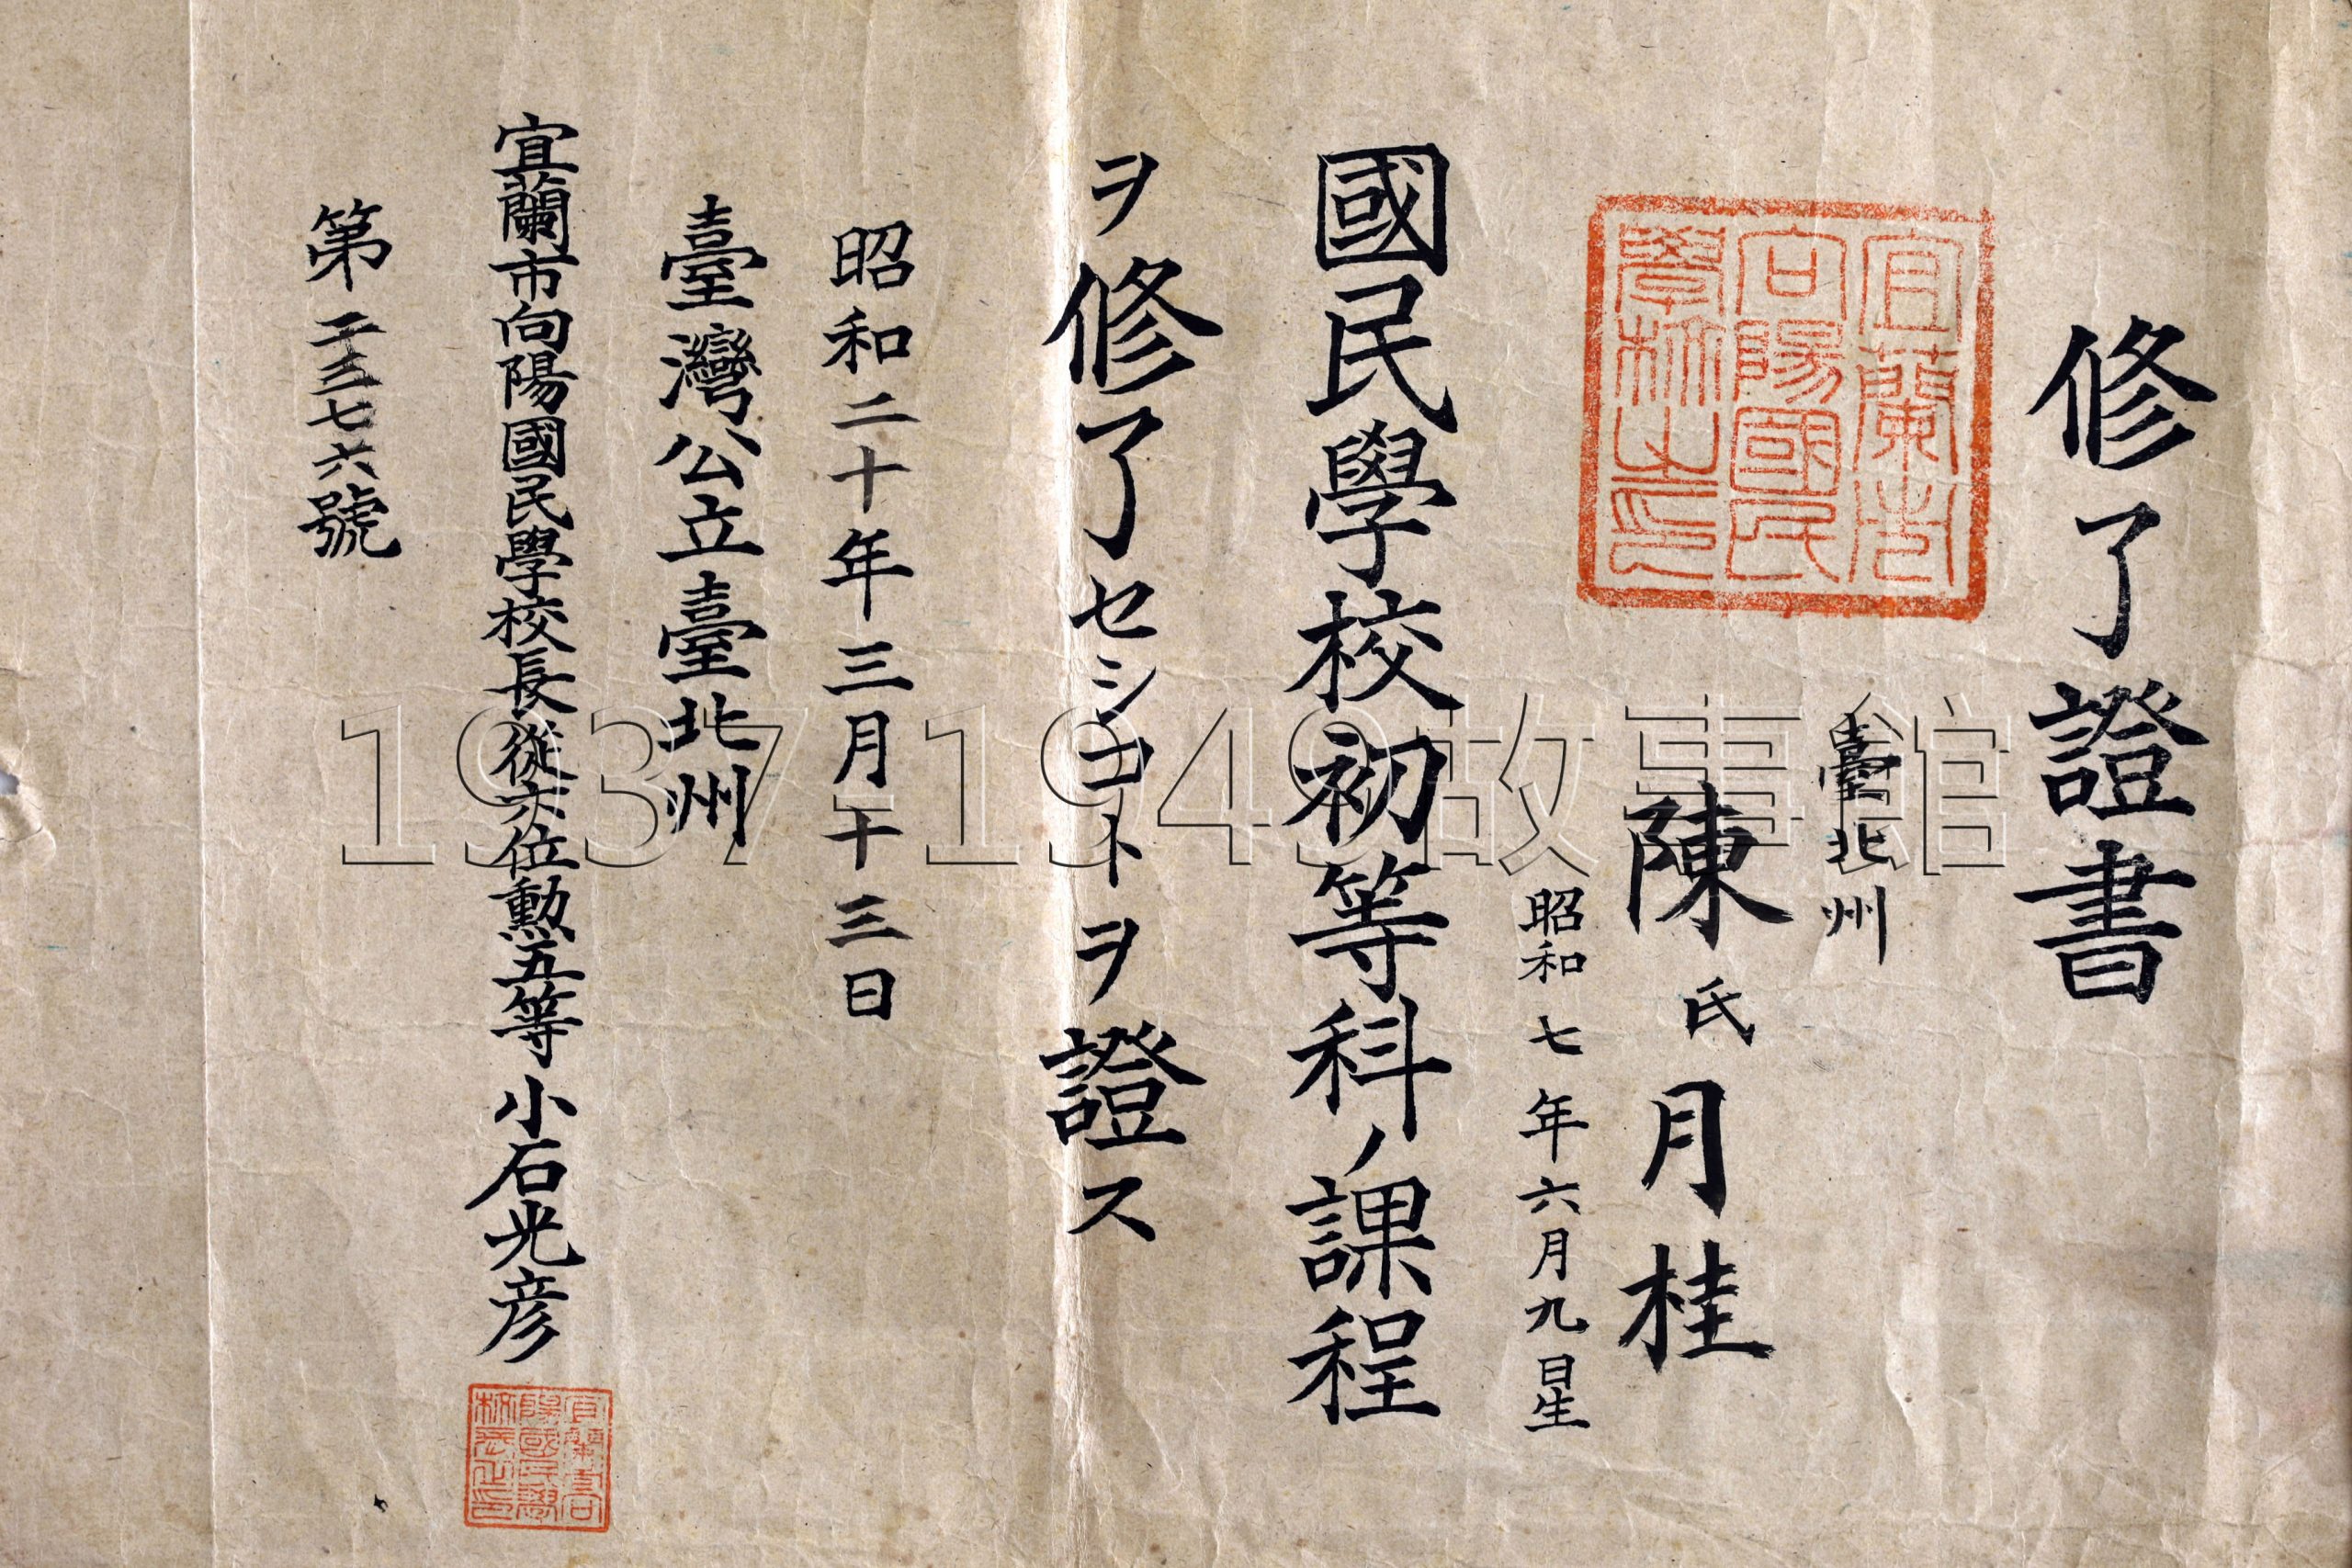 修了證書
宜蘭市
向陽國民
學校之印
臺北州
陳氏月桂
昭和七年六月九日生
國民學校初等科ノ課程
ヲ修了セシコトヲ證ス
昭和二十年三月二十三日
臺灣公立臺北州
宜蘭市向陽國民學校長從六位勳五等小石光彦
第二三七六號
1937-1949故事館